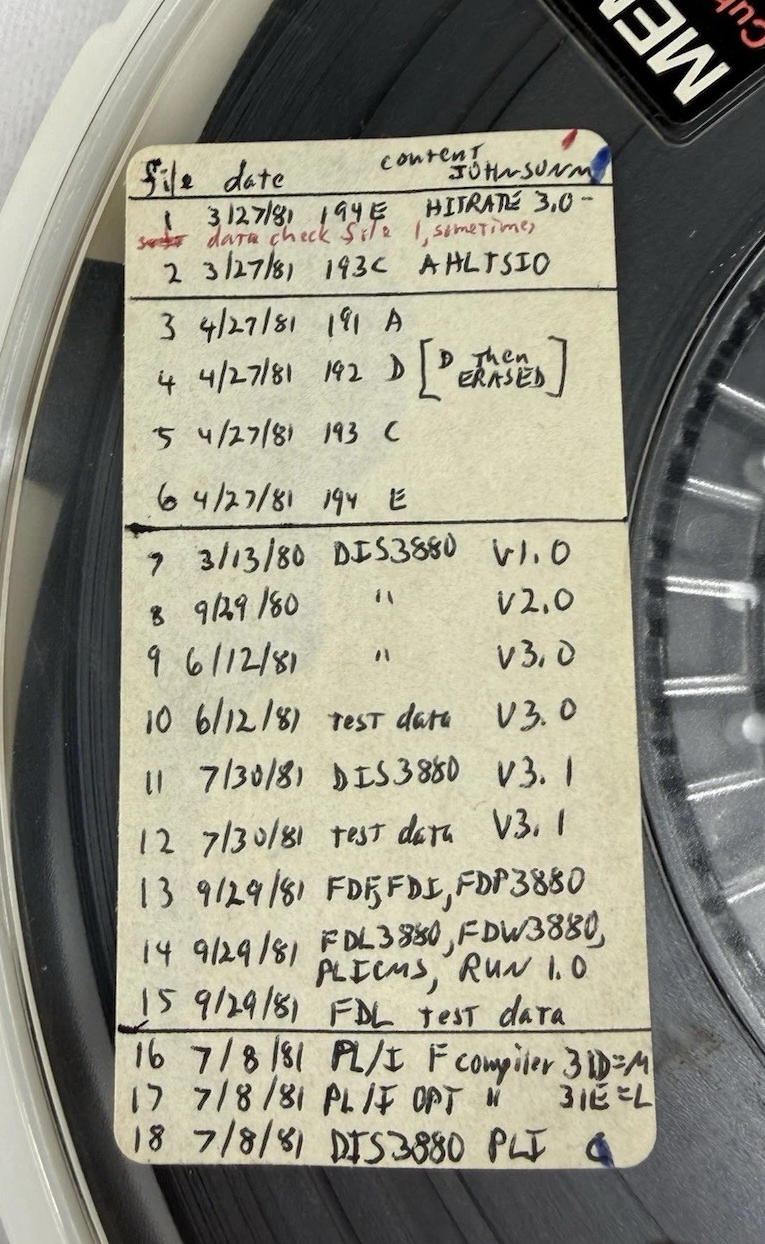 content
file date JOHNSONM
1 3/27/81 194E HITRATE 3.0-
data check file 1, sometimes
2 3/27/81 193C AHLTSIO
3 4/27/81 191 A
4 4/27/81 192 D [D Then
ERASED]
5 4/27/81 193 C
6 4/27/81 194 E
7 3/13/80 DIS3880 V1.0
8 9/29/80 " V2.0
9 6/12/81 " V3.0
10 6/12/81 test data V3.0
11 7/30/81 DIS3880 V3.1
12 7/30/81 test data V3.1
13 9/29/81 FDF, FDI, FDP3880
14 9/29/81 FDL3880, FDW3880,
PLICMS, RUN 1.0
15 9/29/81 FDL test data
16 7/8/81 PL/I F compiler 31D=M
17 7/8/81 PL/I OPT " 31E=L
18 7/8/81 DIS3880 PLI C
MEM
Cub